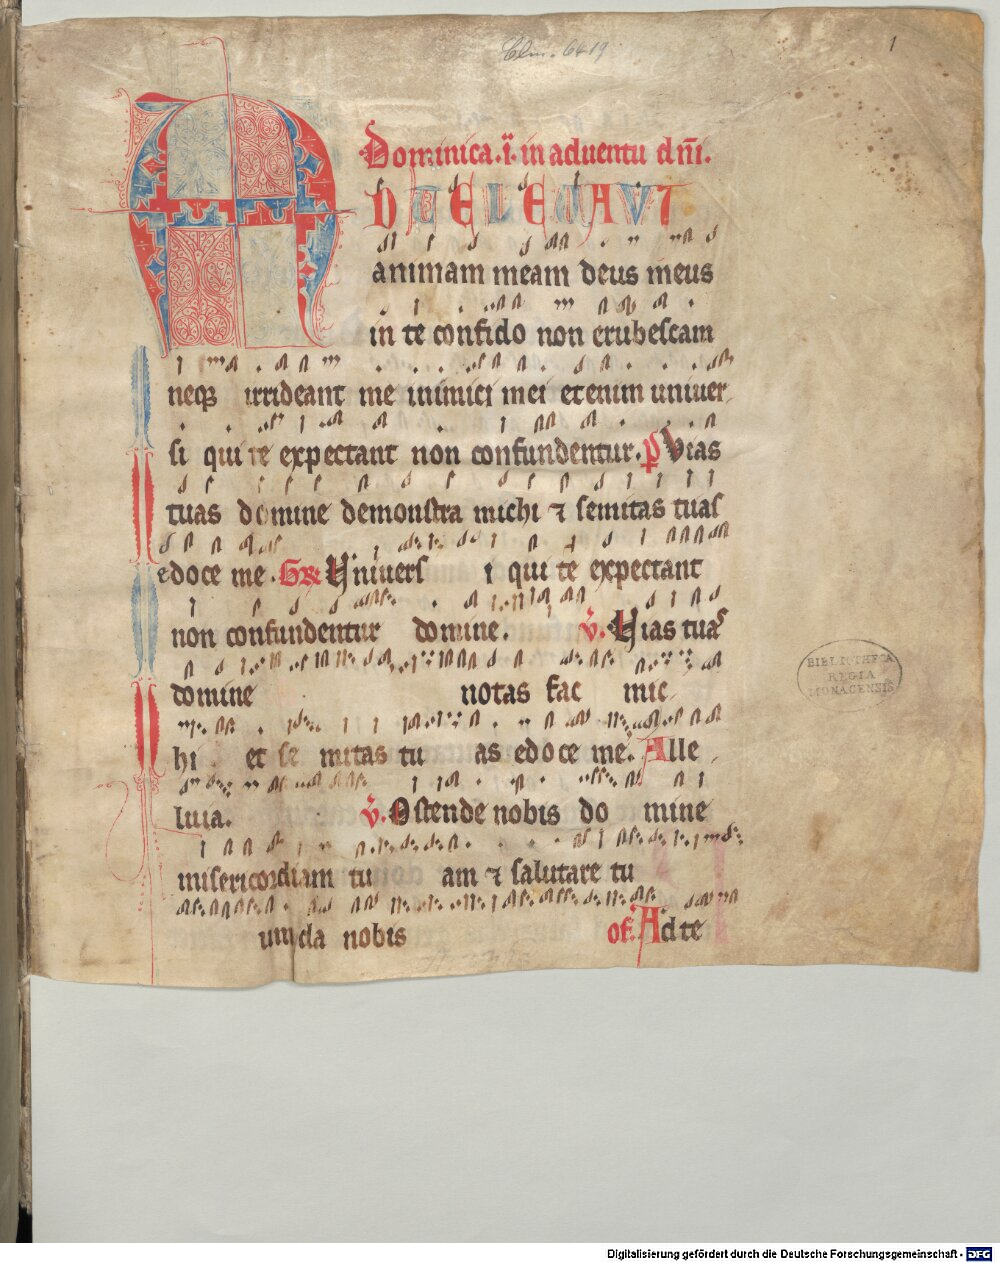 Clm. 6419
1
Dominica. i. in aduentu dn̄i.
AD TE LEVAVI
animam meam deus meus
in te confido non erubescam
neqꝫ irrideant me inimici mei etenim uniuer
si qui te expectant non confundentur. p̄ Vias
tuas domine demonstra michi ⁊ semitas tuas
edoce me. Gr̄ Vniuers i qui te expectant
non confundentur domine. v̄. Vias tuas
domine notas fac mic
hi et se mitas tu as edoce me. Alle
luia. v̄. Ostende nobis do mine
misericordiam tu am ⁊ salutare tu
um da nobis of. Ad te
BIBLIOTHECA
REGIA
MONACENSIS
Digitalisierung gefördert durch die Deutsche Forschungsgemeinschaft - DFG